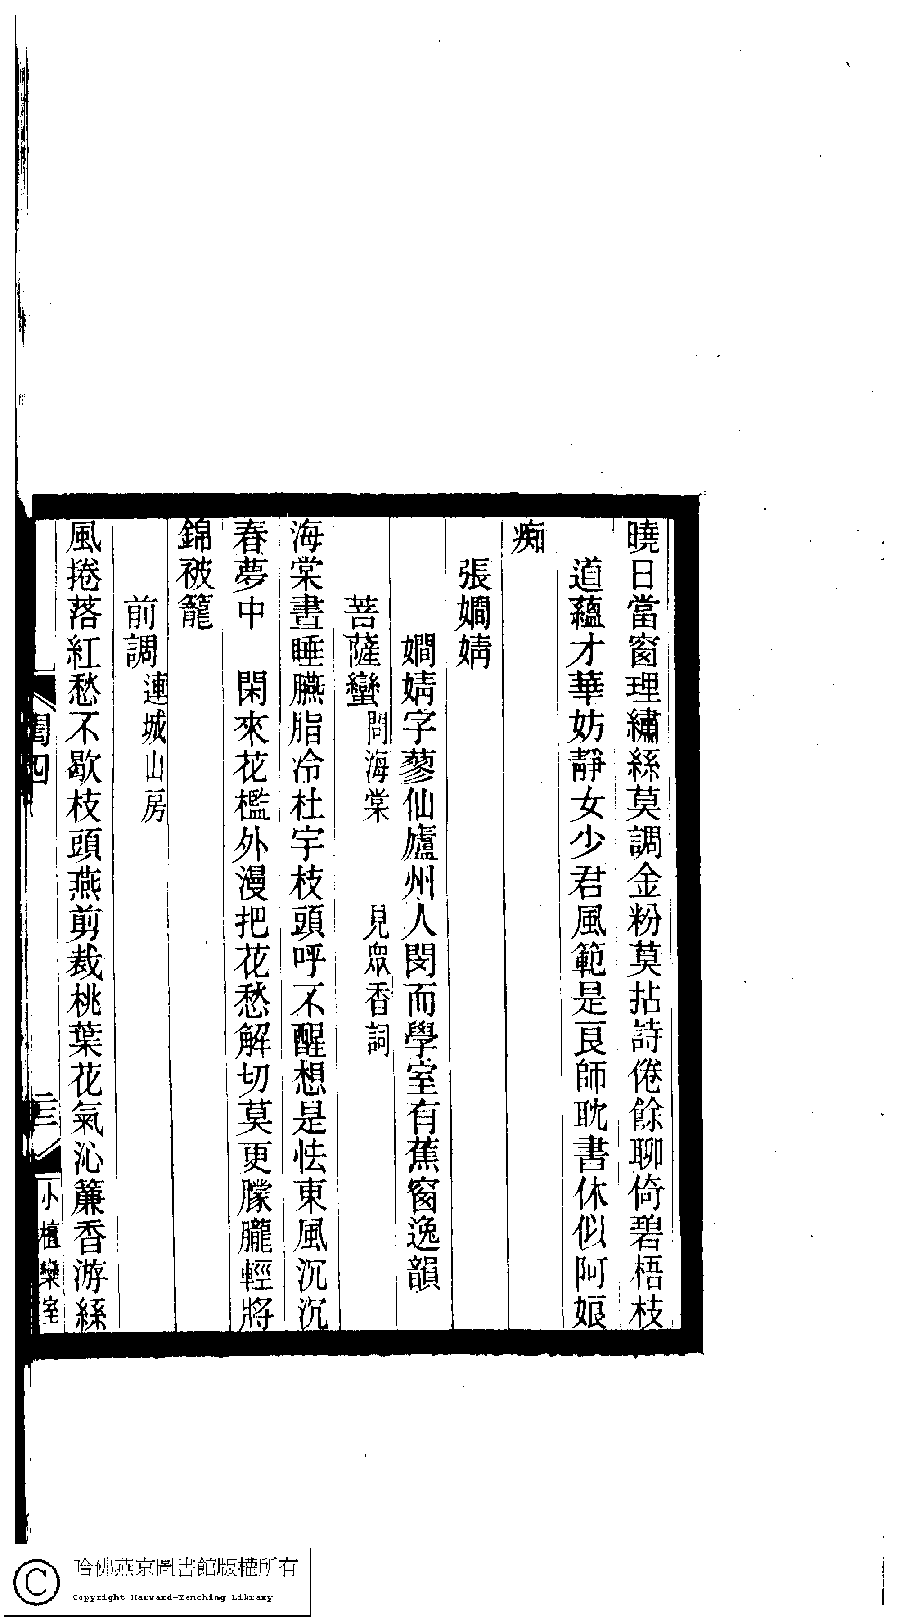 曉日當窗理繡絲莫調金粉莫拈詩倦餘聊倚碧梧枝
道蘊才華妨靜女少君風範是良師耽書休似阿娘
痴
張嫺婧
嫺婧字蓼仙廬州人閔而學室有蕉窗逸韻
菩薩蠻問海棠 見眾香詞
海棠晝睡臙脂冷杜宇枝頭呼不醒想是怯東風沉沉
春夢中 閑來花檻外漫把花愁解切莫更朦朧輕將
錦被籠
前調連城山房
風捲落紅愁不歇枝頭燕剪裁桃葉花氣沁簾香游絲
閨四
三
小檀欒室
哈佛燕京圖書館版權所有
Copyright Harvard-Yenching Library